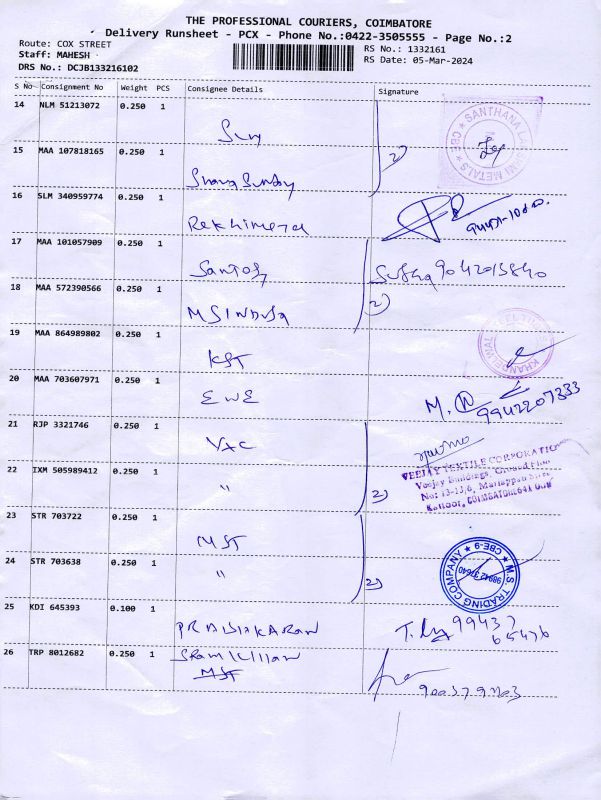 THE PROFESSIONAL COURIERS, COIMBATORE
Delivery Runsheet - PCX - Phone No.:0422-3505555 - Page No.:2
Route: COX STREET
Staff: MAHESH
DRS No.: DCJB133216102
RS No.: 1332161
RS Date: 05-Mar-2024
S No Consignment No Weight PCS Consignee Details Signature
14 NLM 51213072 0.250 1
SANTHANA LAKSHMI METALS CBE
15 MAA 107818165 0.250 1
2)
16 SLM 340959774 0.250 1
17 MAA 101057909 0.250 1
Santosh
18 MAA 572390566 0.250 1
2)
19 MAA 864989802 0.250 1
KST
20 MAA 703607971 0.250 1
EWE
M.
9942207333
21 RJP 3321746 0.250 1
VXC
VEEJAY TEXTILE CORPORATION
Veejay Buildings, Ground Floor
No: 13-13/6,
Kattoor, COIMBATORE-641 009
22 IXM 505989412 0.250 1
"
2)
23 STR 703722 0.250 1
MST
M.S. TRADING COMPANY CBE-9
98942 37640
24 STR 703638 0.250 1
"
2)
25 KDI 645393 0.100 1
PRABHAKARAN
99437
65476
26 TRP 8012682 0.250 1
MST